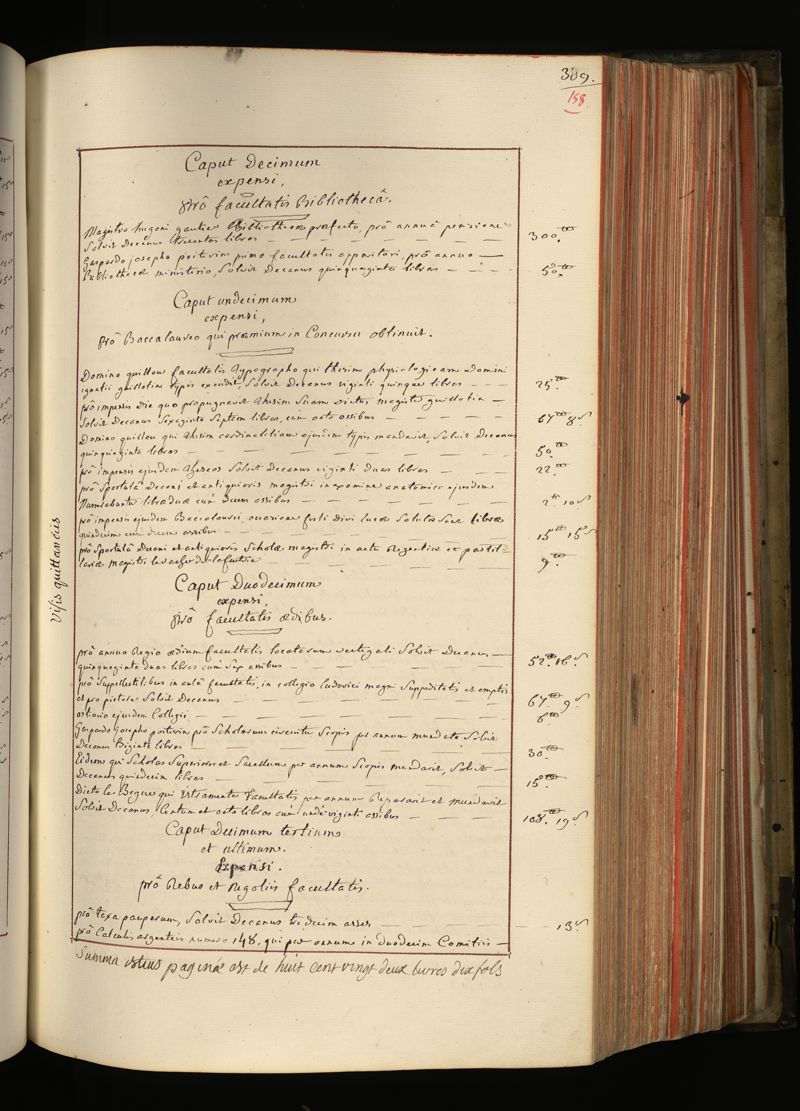 309.
158.
Caput Decimum
expensi,
prô facultatis Bibliothecâ.
Magistro hugoni gautier Bibliothecæ præfecto, prô annuâ pensione
Solvit Decanus trecentas libras 300.tt
Gaspardo josepho poitevin primo facultatis apparitori, prô annuo
Bibliothecæ ministerio, Solvit Decanus quinquaginta libras 50.tt
Caput undecimum
expensi,
prô Baccalaureo qui præmium in Concursu obtinuit.
Domino quillau facultatis typographo qui thesim physiologicam Domini
ignatii guillotin typis excudit, Solvit Decanus viginti quinque libras 25.tt
prô impensis Die quo propugnavit thesim Suam Dictus magister guillotin
Solvit Decanus Sexaginta Septem libras, cùm octo assibus 67.tt 8.s
Domino quillau qui thesim cardinalitiam ejusdem typis mandavit, Solvit Decanus
quinquaginta libras 50.tt
prô impensis ejusdem theseos Solvit Decanus viginti duas libras 22.tt
prô Sportulâ Decani et antiquioris magistri in examine anatomico ejusdem
libræ duæ cùm decem assibus 2.tt 10.s
prô impensis ejusdem Baccalaurei, occasione festi Divi lucæ Solutæ Sunt libræ
quindecim cùm assibus 15.tt 15.s
prô Sportulâ Decani et antiquioris Scholæ magistri in actu Regentiæ et pastil-
lariæ magistri 9.tt
Caput Duodecimum
expensi,
prô facultatis ædibus.
prô annuo Regio ædium facultatis locatarum vectigali Solvit Decanus
quinquaginta duas libras cùm Sex assibus 52.tt 6.s
prô Suppellectilibus in aulâ facultatis, in collegio ludovici magni Suppeditatis et emptis
et pro pictore Solvit Decanus 67.tt 9.s
ostiario ejusdem Collegii 6.tt
Gaspardo Josepho poitevin prô Scholarum circuitu Scopis per annum mundato Solvit
Decanus triginta libras 30.tt
Eidem qui Scholas Superiores et Sacellum per annum Scopis mundavit, Solvit
Decanus quindecim libras 15.tt
Dicto le Begue qui vestamenta facultatis per annum Reparavit et mundavit
Solvit Decanus, Centum et octo libras cùm undeviginti assibus 108.tt 19.s
Caput Decimum tertium
et ultimum.
Expensi.
prô Rebus et Negotiis facultatis.
prô taxa pauperum, Solvit Decanus tredecim asses 13.s
prô Calculis argenteis numero 148, qui per annum in duodecim Comitiis
Summa istius paginæ est de huit cent vingt deux livres dix sols
Visis quittanciis